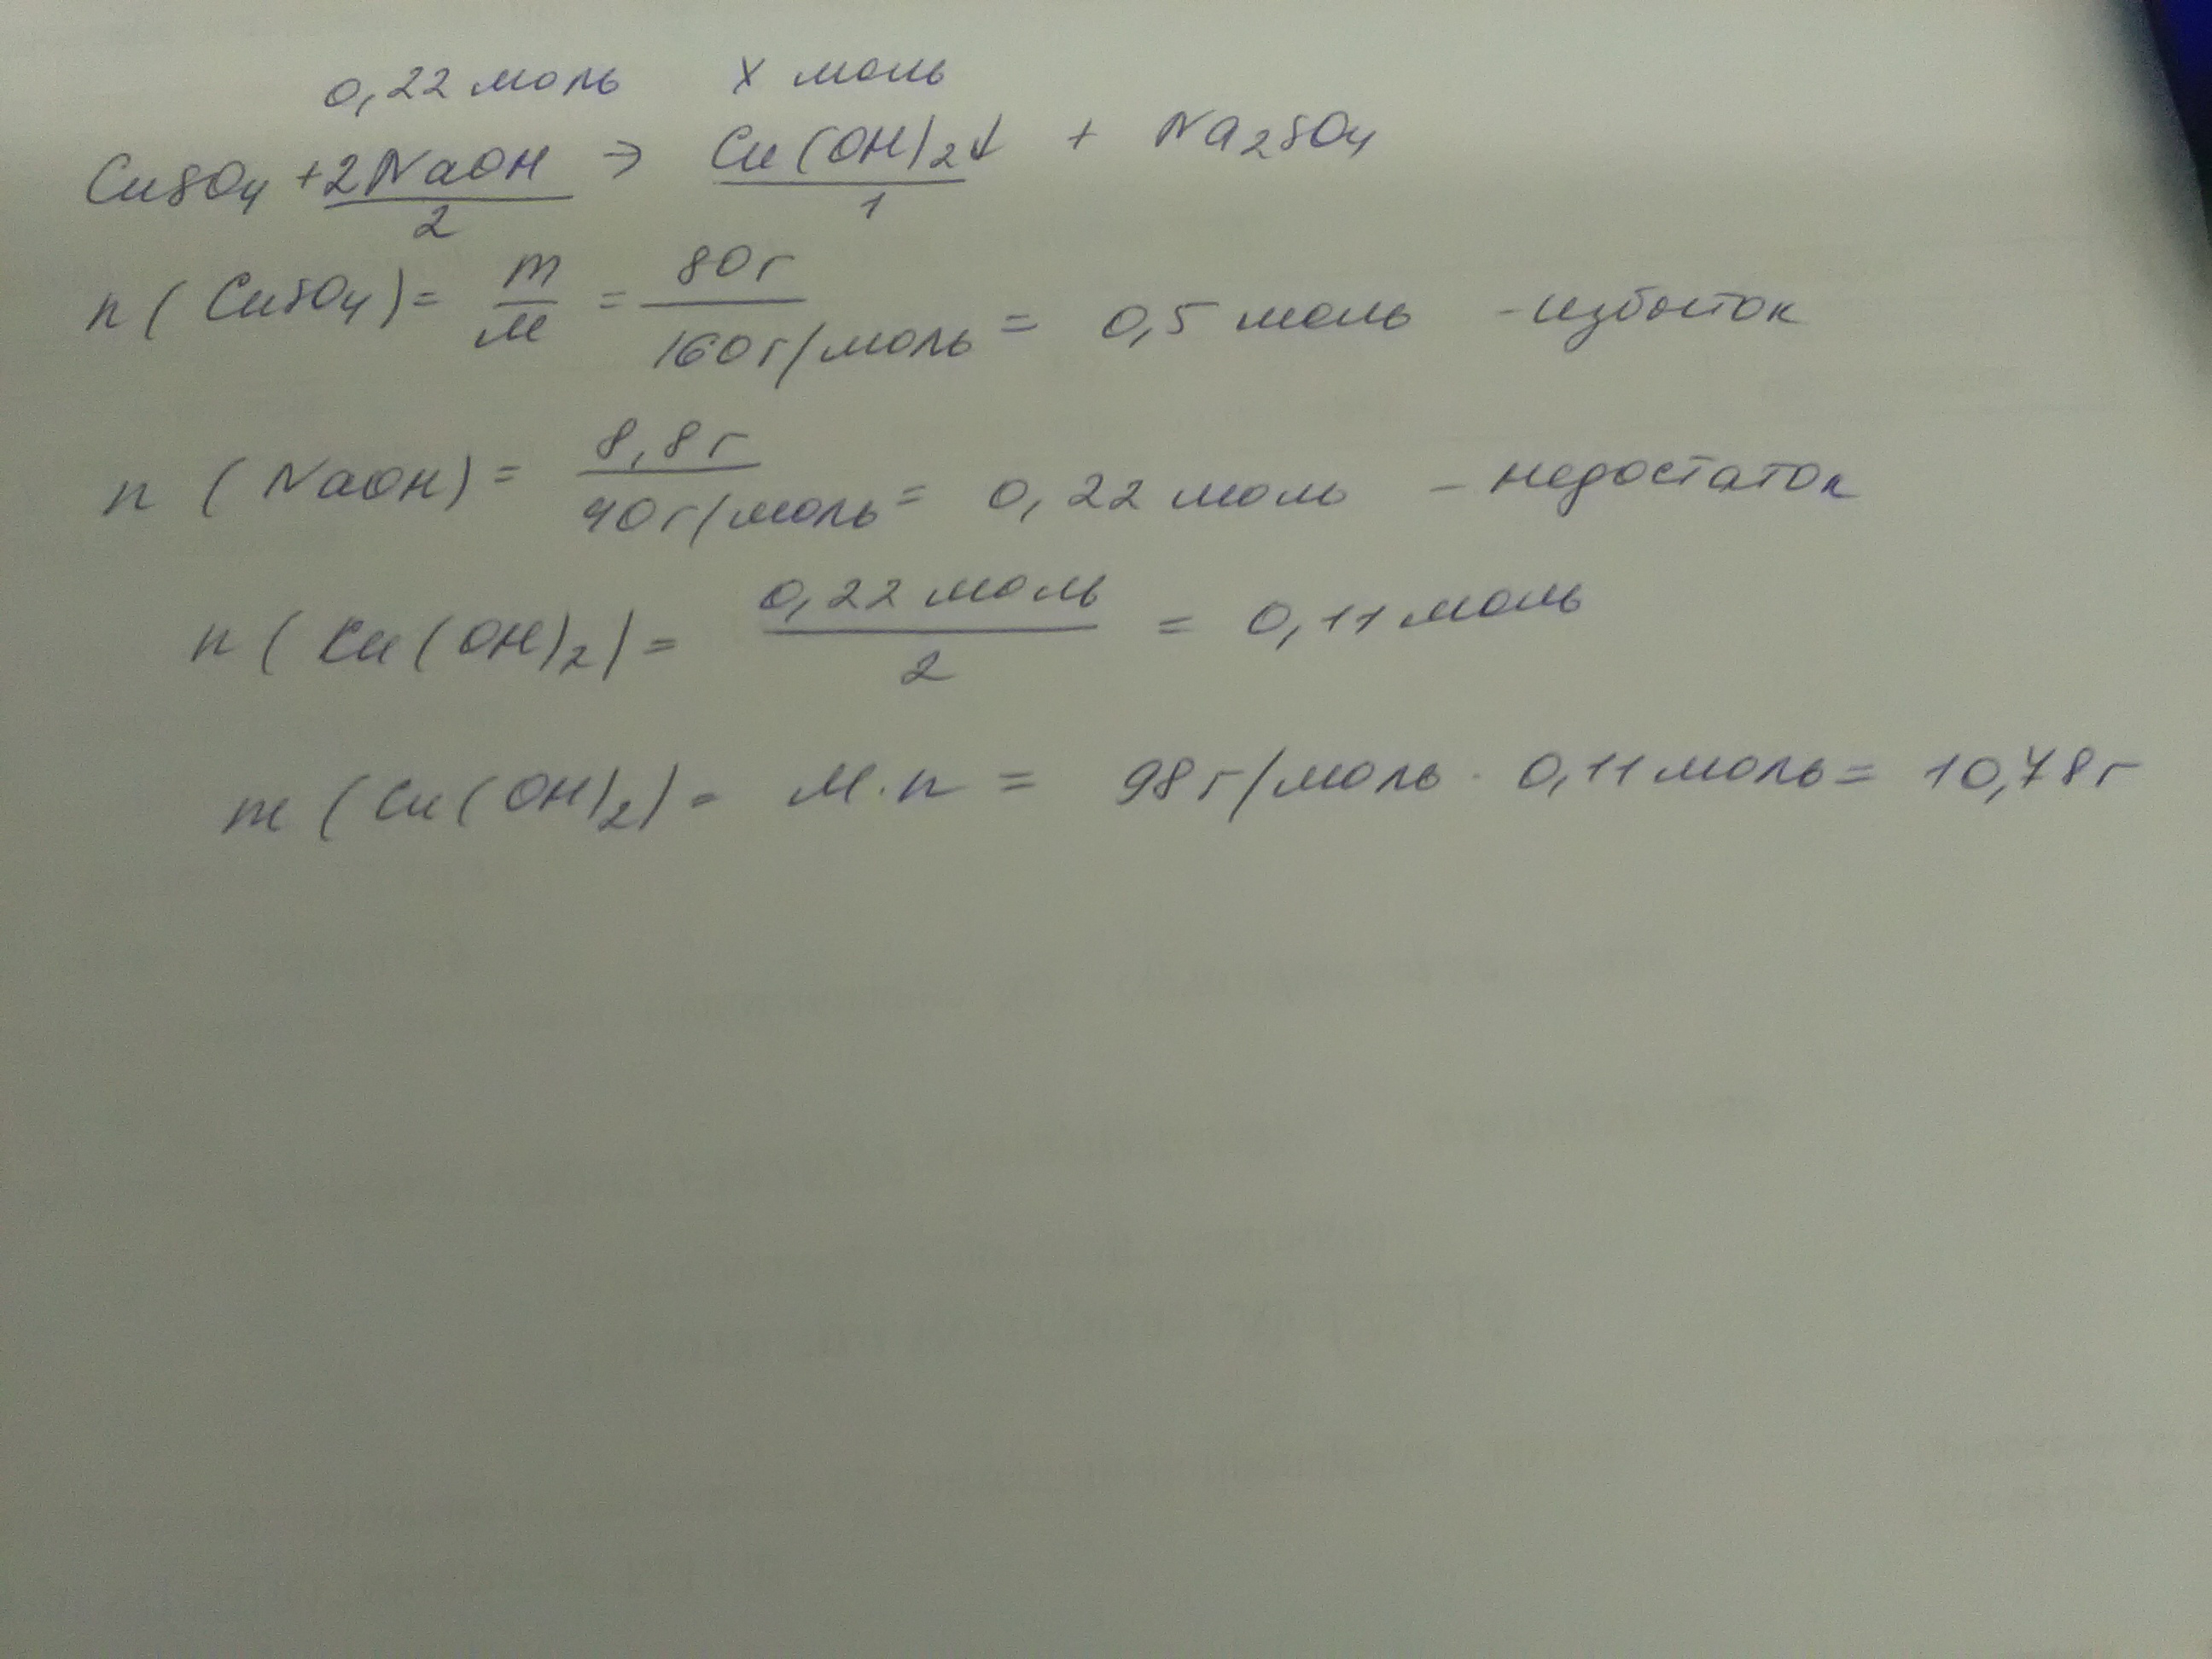 0,22 моль   x моль
CuSO4 + 2NaOH → Cu(OH)2↓ + Na2SO4
2   1
n (CuSO4) = m/M = 80г / 160г/моль = 0,5 моль - избыток
n (NaOH) = 8,8г / 40г/моль = 0,22 моль - недостаток
n (Cu(OH)2) = 0,22 моль / 2 = 0,11 моль
m (Cu(OH)2) = M · n = 98г/моль · 0,11 моль = 10,78г